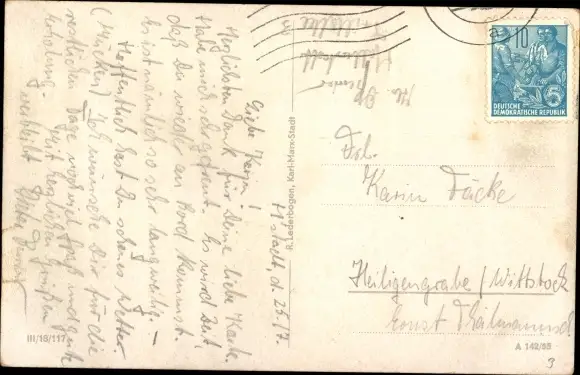 H'stadt, d. 25.7.
Liebe Karin!
Herzlichsten Dank für Deine liebe Karte.
Habe mich sehr gefreut. Es wird Zeit,
daß Du wieder an Bord kommst.
Es ist nämlich so sehr langweilig. –
Hoffentlich hast Du schönes Wetter
(Mücken). Ich wünsche Dir für die
restlichen Tage noch viel Spaß und gute
Erholung.
Mit herzlichen Grüßen
verbleibt Dieter
III/18/117
R. Lederbogen, Karl-Marx-Stadt
10
5
DEUTSCHE
DEMOKRATISCHE REPUBLIK
Frl.
Karin Däcke
Heiligengrabe / Wittstock
Ernst Thälmannstr.
A 142/55
3